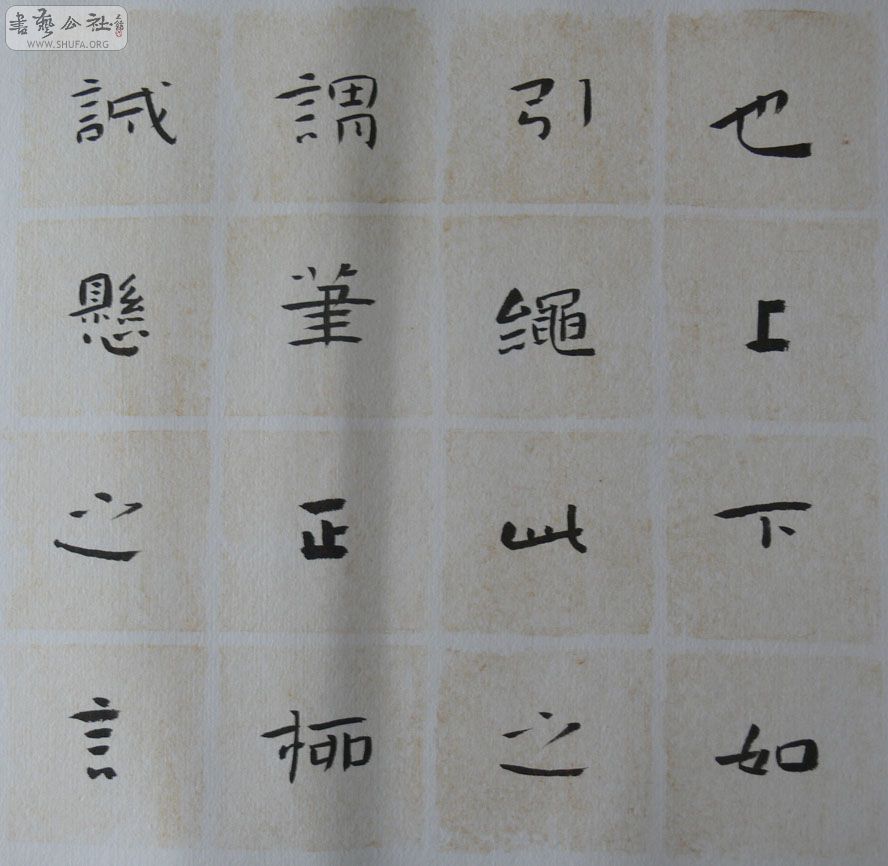 也上下如
引繩此之
謂筆正桺
誠懸之言
書藝公社
WWW.SHUFA.ORG